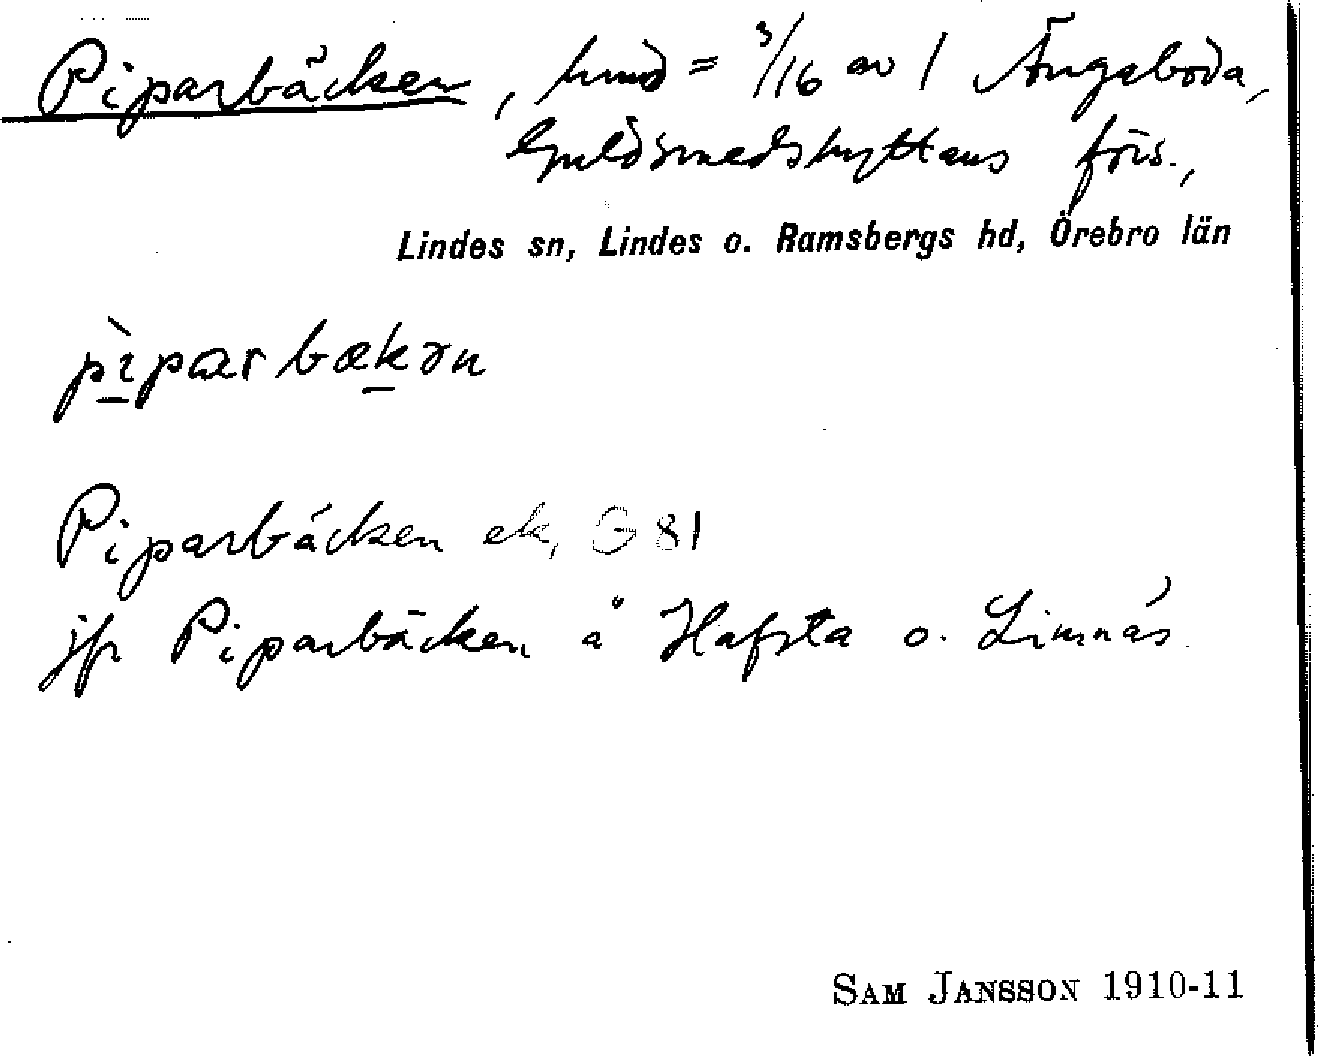 Piparbäcken, hmd = 3/16 av 1 Ängaboda,
Guldsmedshyttans förs.,
Lindes sn, Lindes o. Ramsbergs hd, Örebro län
pìparbækən
Piparbäcken ek, G 81
jfr Piparbäcken å Hafsta o. Limnäs
SAM JANSSON 1910-11